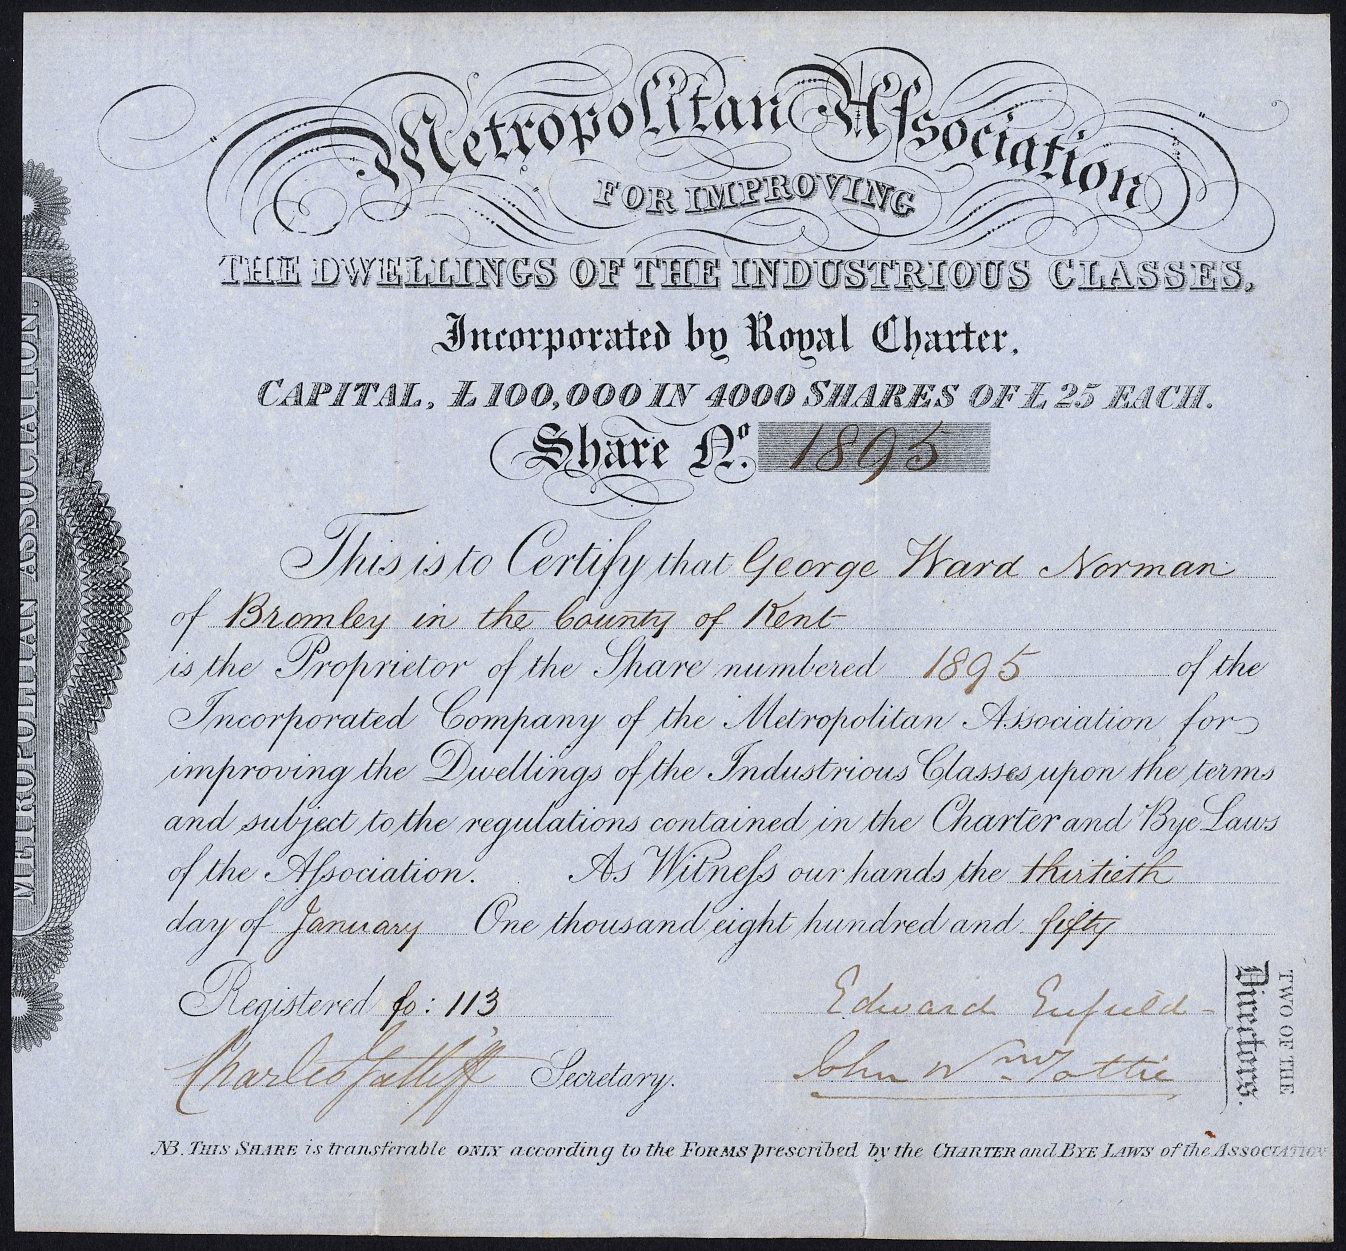 Metropolitan Association
FOR IMPROVING
THE DWELLINGS OF THE INDUSTRIOUS CLASSES,
Incorporated by Royal Charter.
CAPITAL, £100,000 IN 4000 SHARES OF £25 EACH.
Share No. 1895
This is to Certify that George Ward Norman
of Bromley in the County of Kent
is the Proprietor of the Share numbered 1895 of the
Incorporated Company of the Metropolitan Association for
improving the Dwellings of the Industrious Classes upon the terms
and subject to the regulations contained in the Charter and Bye Laws
of the Aſsociation. As Witneſs our hands the thirtieth
day of January One thousand eight hundred and fifty
Registered fo: 113
Edward Enfield
Charles Gatliff Secretary.
John Wm. Tottie
TWO OF THE
Directors.
NB. THIS SHARE is transferable ONLY according to the FORMS prescribed by the CHARTER and BYE LAWS of the ASSOCIATION
METROPOLITAN ASSOCIATION.